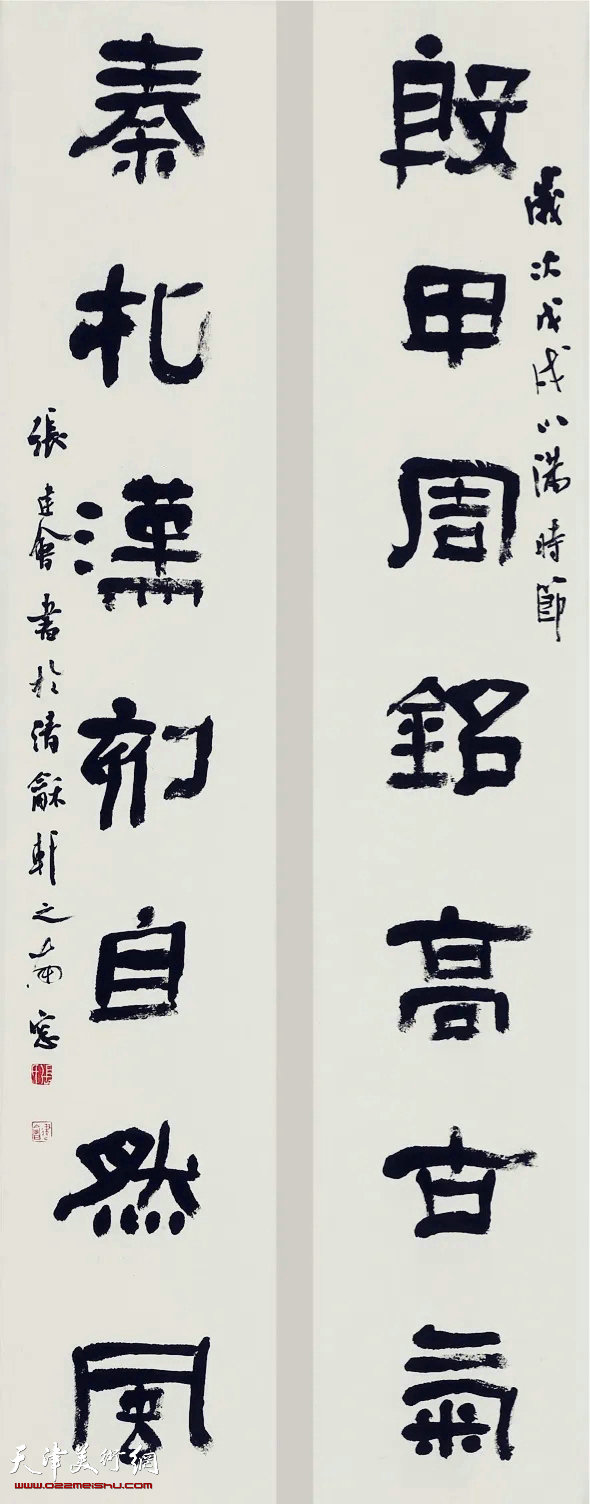 歲次戊戌小滿時節
殷甲周銘高古氣
秦札漢刻自然風
張建會書於清龢軒之南窗
天津美術網
www.022meishu.com